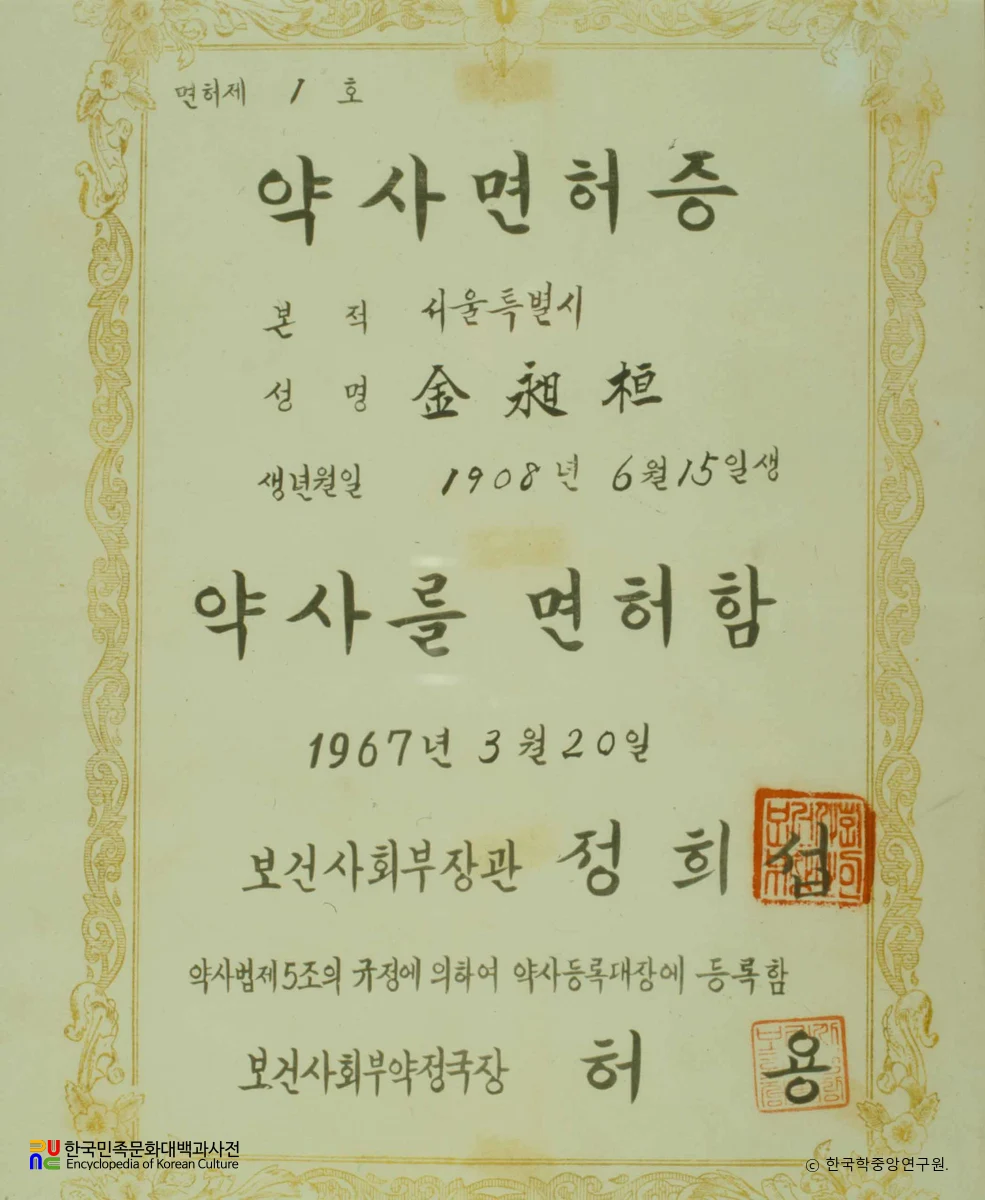 면허제 1 호
약사면허증
본 적 서울특별시
성 명 金昶桓
생년월일 1908년 6월 15일생
약사를 면허함
1967년 3월 20일
보건사회부장관 정희섭
약사법제5조의 규정에 의하여 약사등록대장에 등록함
보건사회부약정국장 허용
한국민족문화대백과사전
Encyclopedia of Korean Culture
© 한국학중앙연구원.